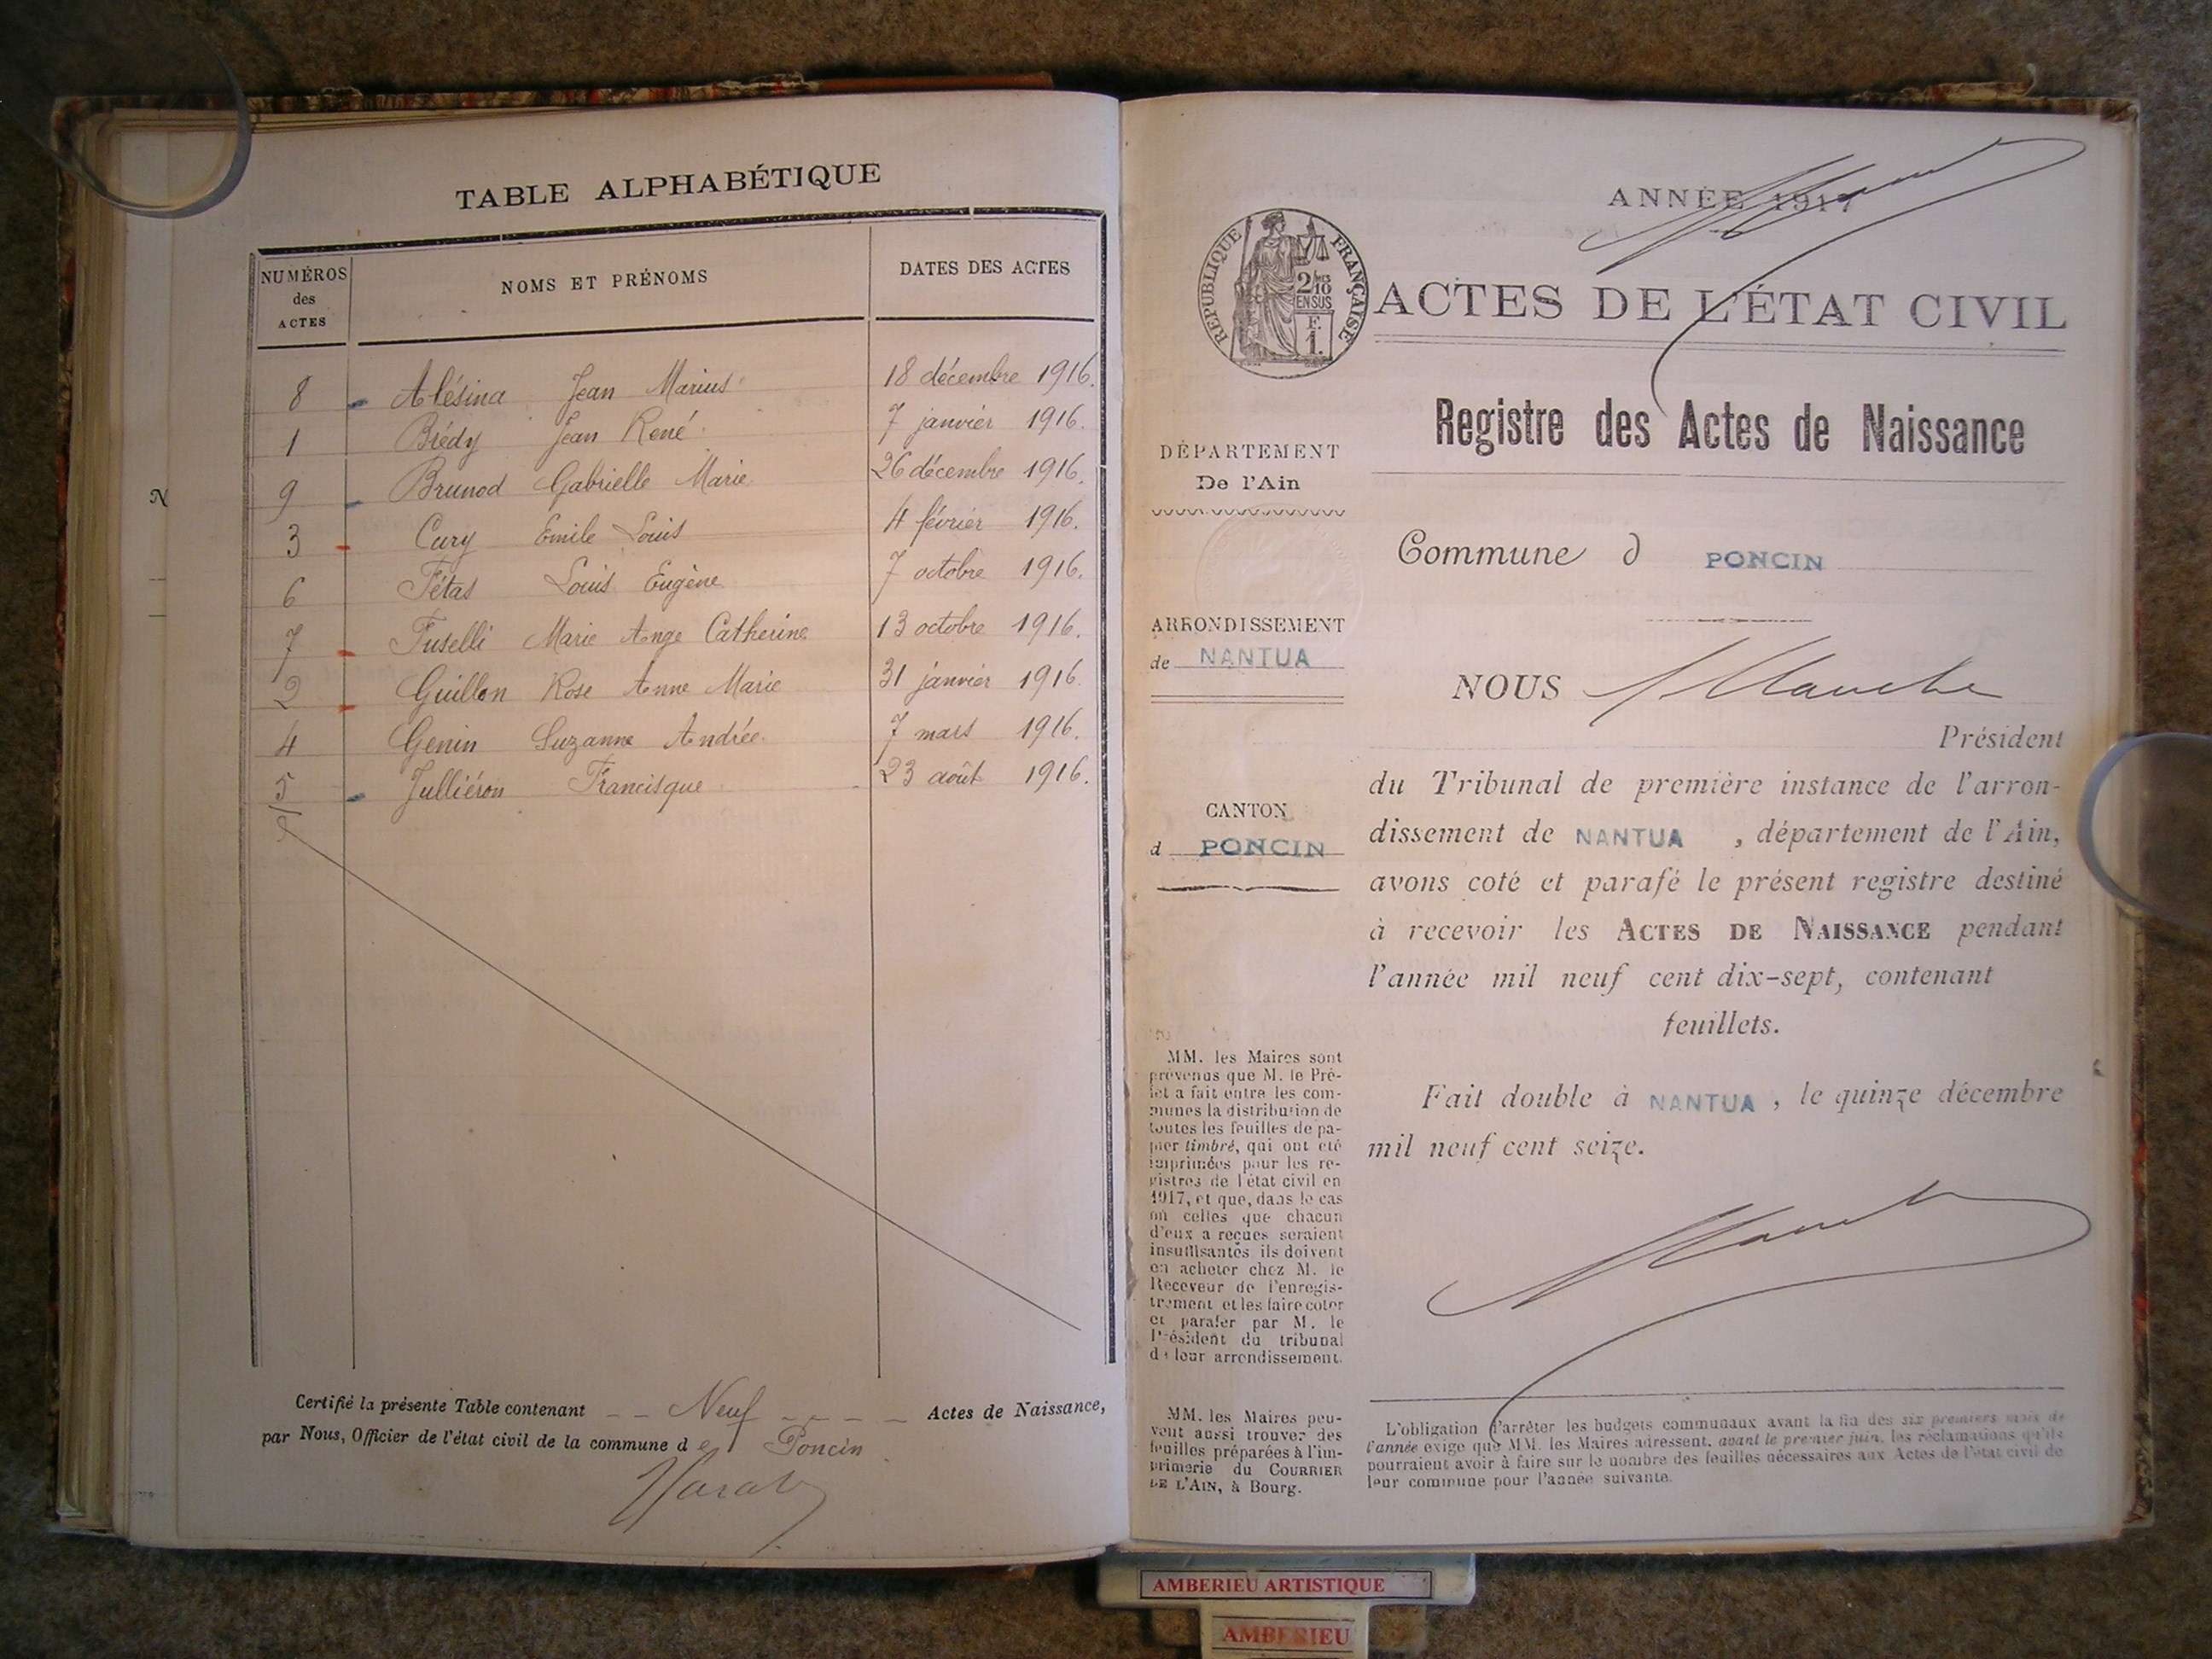 TABLE ALPHABÉTIQUE
NUMÉROS des ACTES NOMS ET PRÉNOMS DATES DES ACTES
8 Alésina Jean Marius 18 décembre 1916.
1 Brédy Jean René 7 janvier 1916.
9 Brunod Gabrielle Marie 26 décembre 1916.
3 Cury Emile Louis 4 février 1916.
6 Fétas Louis Eugène 7 octobre 1916.
7 Fuselli Marie Ange Catherine 13 octobre 1916.
2 Guillon Rose Anne Marie 31 janvier 1916.
4 Genin Suzanne Andrée 7 mars 1916.
5 Julliéron Francisque 23 août 1916.
Certifié la présente Table contenant Neuf Actes de Naissance,
par Nous, Officier de l'état civil de la commune de Poncin
N
ANNÉE 1917
RÉPUBLIQUE FRANÇAISE
2/10
EN SUS
F.
1.
ACTES DE L'ÉTAT CIVIL
Registre des Actes de Naissance
DÉPARTEMENT
De l'Ain
Commune d PONCIN
ARRONDISSEMENT
de NANTUA
CANTON
d PONCIN
NOUS
Président
du Tribunal de première instance de l'arron-
dissement de NANTUA , département de l'Ain,
avons coté et parafé le présent registre destiné
à recevoir les ACTES DE NAISSANCE pendant
l'année mil neuf cent dix-sept, contenant
feuillets.
Fait double à NANTUA , le quinze décembre
mil neuf cent seize.
MM. les Maires sont
prévenus que M. le Pré-
fet a fait entre les com-
munes la distribution de
toutes les feuilles de pa-
pier timbré, qui ont été
imprimées pour les re-
gistres de l'état civil en
1917, et que, dans le cas
où celles que chacun
d'eux a reçues seraient
insuffisantes ils doivent
en acheter chez M. le
Receveur de l'enregis-
trement et les faire coter
et parafer par M. le
Président du tribunal
de leur arrondissement.
MM. les Maires peu-
vent aussi trouver des
feuilles préparées à l'im-
primerie du COURRIER
DE L'AIN, à Bourg.
L'obligation d'arrêter les budgets communaux avant la fin des six premiers mois de
l'année exige que MM. les Maires adressent, avant le premier juin, les réclamations qu'ils
pourraient avoir à faire sur le nombre des feuilles nécessaires aux Actes de l'état civil de
leur commune pour l'année suivante.
AMBERIEU ARTISTIQUE
AMBERIEU